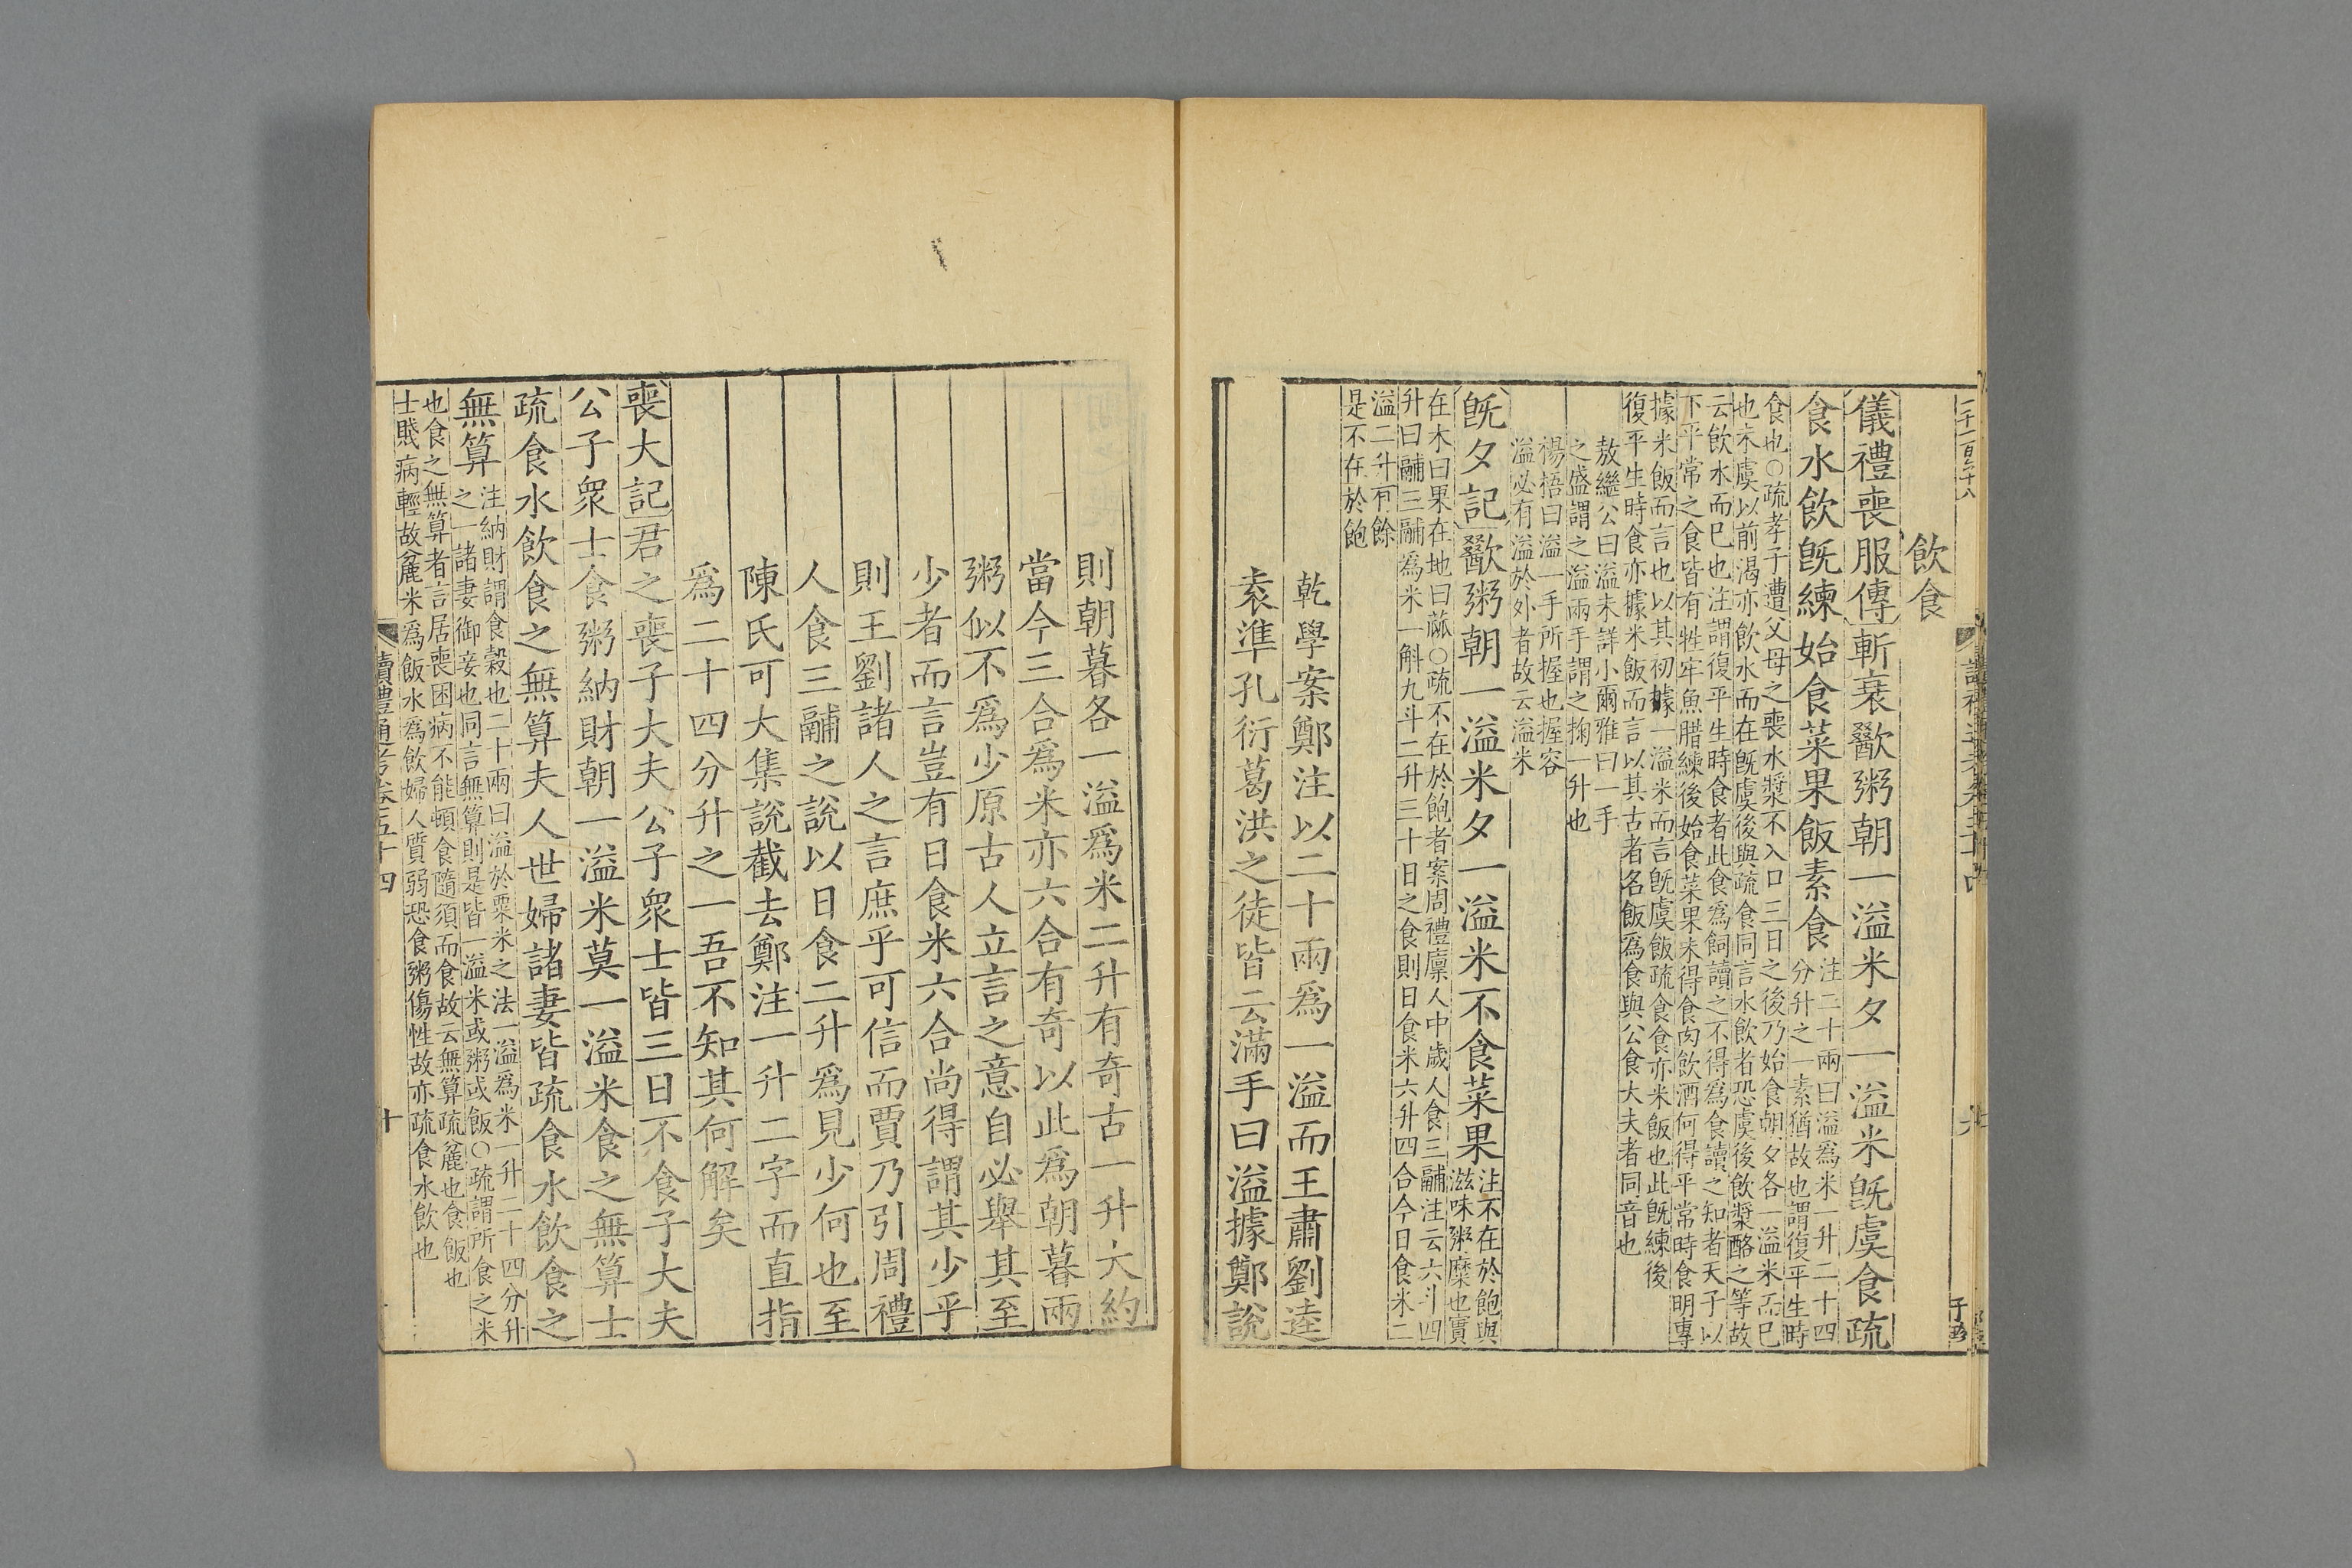 飲食
儀禮喪服傳斬衰歠粥朝一溢米夕一溢米旣虞食疏
食水飲旣練始食菜果飯素食
注二十兩曰溢爲米一升二十四
分升之一素猶故也謂復平生時
食也○疏孝子遭父母之喪水漿不入口三日之後乃始食朝夕各一溢米而已
也未虞以前渴亦飲水而在旣虞後與疏食同言水飲者恐虞後飲漿酪之等故
云飲水而已也注謂復平生時食者此食爲飼讀之不得爲食讀之知者天子以
下平常之食皆有牲牢魚腊練後始食菜果未得食肉飲酒何得平常時食明專
據米飯而言也以其初據一溢米而言旣虞飯疏食食亦米飯也此旣練後
復平生時食亦據米飯而言以其古者名飯爲食與公食大夫者同音也
敖繼公曰溢未詳小爾雅曰一手
之盛謂之溢兩手謂之掬一升也
楊梧曰溢一手所握也握容
溢必有溢於外者故云溢米
旣夕記歠粥朝一溢米夕一溢米不食菜果
注不在於飽與
滋味粥糜也實
在木曰果在地曰蓏○疏不在於飽者案周禮廩人中歲人食三鬴注云六斗四
升曰鬴三鬴爲米一斛九斗二升三十日之食則日食米六升四合今日食米二
溢二升有餘
是不在於飽
乾學案鄭注以二十兩爲一溢而王肅劉逵
袁準孔衍葛洪之徒皆云滿手曰溢據鄭說
則朝暮各一溢爲米二升有奇古一升大約
當今三合爲米亦六合有奇以此爲朝暮兩
粥似不爲少原古人立言之意自必舉其至
少者而言豈有日食米六合尚得謂其少乎
則王劉諸人之言庶乎可信而賈乃引周禮
人食三鬴之說以日食二升爲見少何也至
陳氏可大集說截去鄭注一升二字而直指
爲二十四分升之一吾不知其何解矣
喪大記君之喪子大夫公子衆士皆三日不食子大夫
公子衆士食粥納財朝一溢米莫一溢米食之無算士
疏食水飲食之無算夫人世婦諸妻皆疏食水飲食之
無算
注納財謂食穀也二十兩曰溢於粟米之法一溢爲米一升二十四分升
之一諸妻御妾也同言無算則是皆一溢米或粥或飯○疏謂所食之米
也食之無算者言居喪困病不能頓食隨須而食故云無算疏麄也食飯也
士賤病輕故麄米爲飯水爲飲婦人質弱恐食粥傷性故亦疏食水飲也
讀禮通考卷五十四
十